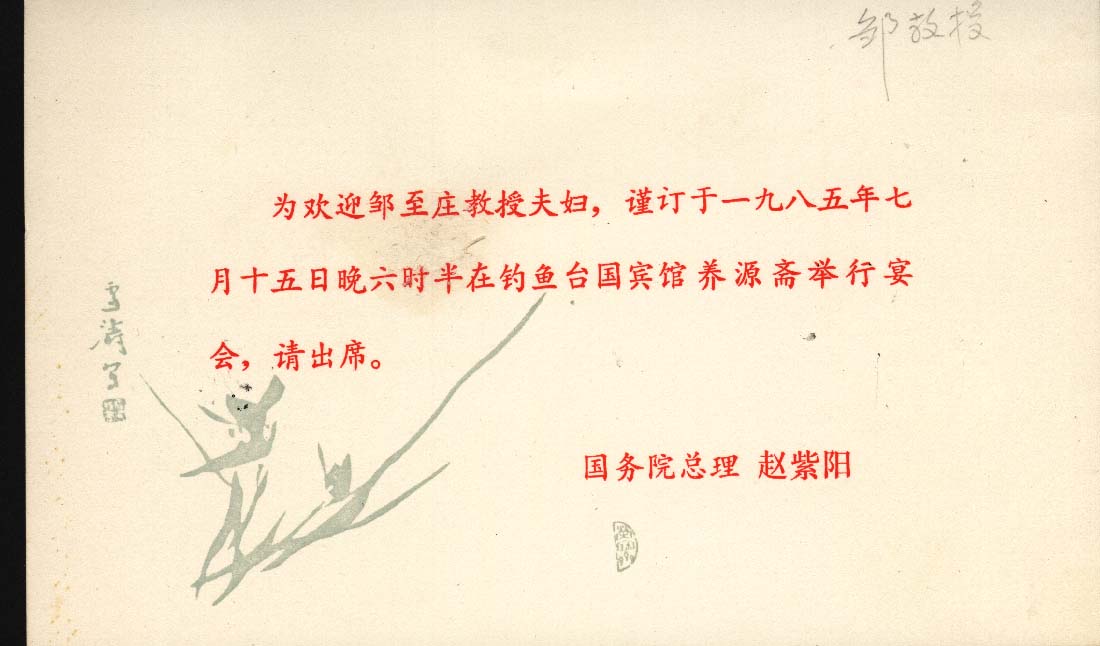 邹教授
为欢迎邹至庄教授夫妇，谨订于一九八五年七
月十五日晚六时半在钓鱼台国宾馆养源斋举行宴
会，请出席。
国务院总理 赵紫阳
雪涛写